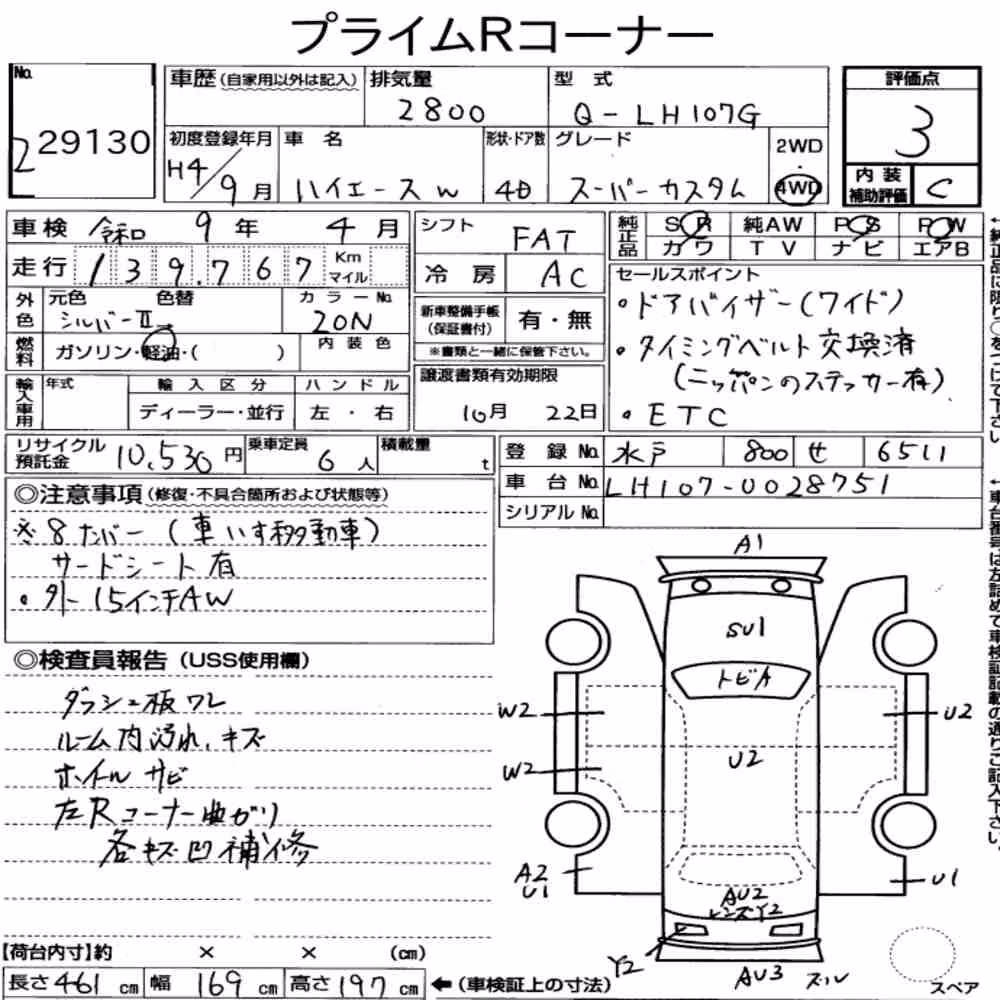 プライムRコーナー
No.
229130
車歴(自家用以外は記入) 排気量 型式
2800 Q-LH107G
初度登録年月 車名 形状・ドア数 グレード 2WD・4WD
H4/9月 ハイエースW 4D スーパーカスタム
評価点
3
内装補助評価 C
車検 令和 9年 4月
走行 139,767 Km マイル
外色 元色 色替 カラーNo.
シルバーII 20N
燃料 ガソリン・軽油・( ) 内装色
輸入車用 年式 輸入区分 ハンドル
ディーラー・並行 左・右
シフト FAT
冷房 AC
新車整備手帳(保証書付) 有・無
※書類と一緒に保管下さい。
譲渡書類有効期限
10月 22日
純正品 SR 純AW PS PW
カワ TV ナビ エアB
セールスポイント
・ドアバイザー(ワイド)
・タイミングベルト交換済
(ニッポンのステッカー有)
・ETC
リサイクル預託金 10,530円 乗車定員 6人 積載量 t
登録No. 水戸 800 せ 6511
車台No. LH107-0028751
シリアルNo.
◎注意事項(修復・不具合箇所および状態等)
※8ナンバー(車いす移動車)
サードシート有
・外15インチAW
◎検査員報告(USS使用欄)
ダッシュ板ワレ
ルーム内汚れ、キズ
ホイルサビ
左Rコーナー曲がり
各キズ凹補修
A1
SU1
トビA
W2
U2
U2
W2
A2
U1
U1
AU2
レンズY2
Y2
AU3 ズレ
スペア
【荷台内寸】約 × × (cm)
長さ461cm 幅169cm 高さ197cm ←(車検証上の寸法)
←純正品に限り○をつけて下さい。
←車台番号は左詰めで車検証記載の通りご記入下さい。